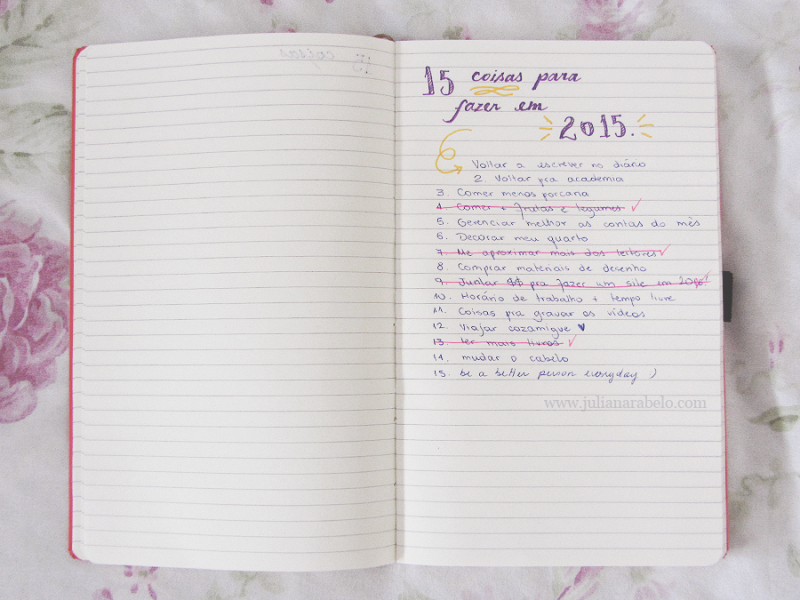 15 coisas para
fazer em
2015.
Voltar a escrever no diário
2. Voltar pra academia
3. Comer menos porcaria
4. Comer + frutas e legumes ✓
5. Gerenciar melhor as contas do mês
6. Decorar meu quarto
7. Me aproximar mais dos leitores ✓
8. Comprar materiais de desenho
9. Juntar $$ pra fazer um site em ✓
10. Horário de trabalho + tempo livre
11. Coisas pra gravar os vídeos
12. Viajar cazamigue ♥
13. Ler mais livros ✓
14. mudar o cabelo
15. be a better person everyday :)
www.julianarabelo.com